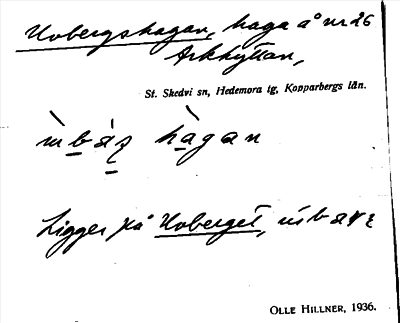 Uvbergshagan, haga å nr 26
Arkhyttan,
St. Skedvi sn, Hedemora tg, Kopparbergs län.
hàgan
Ligger på Uvberget,
OLLE HILLNER, 1936.